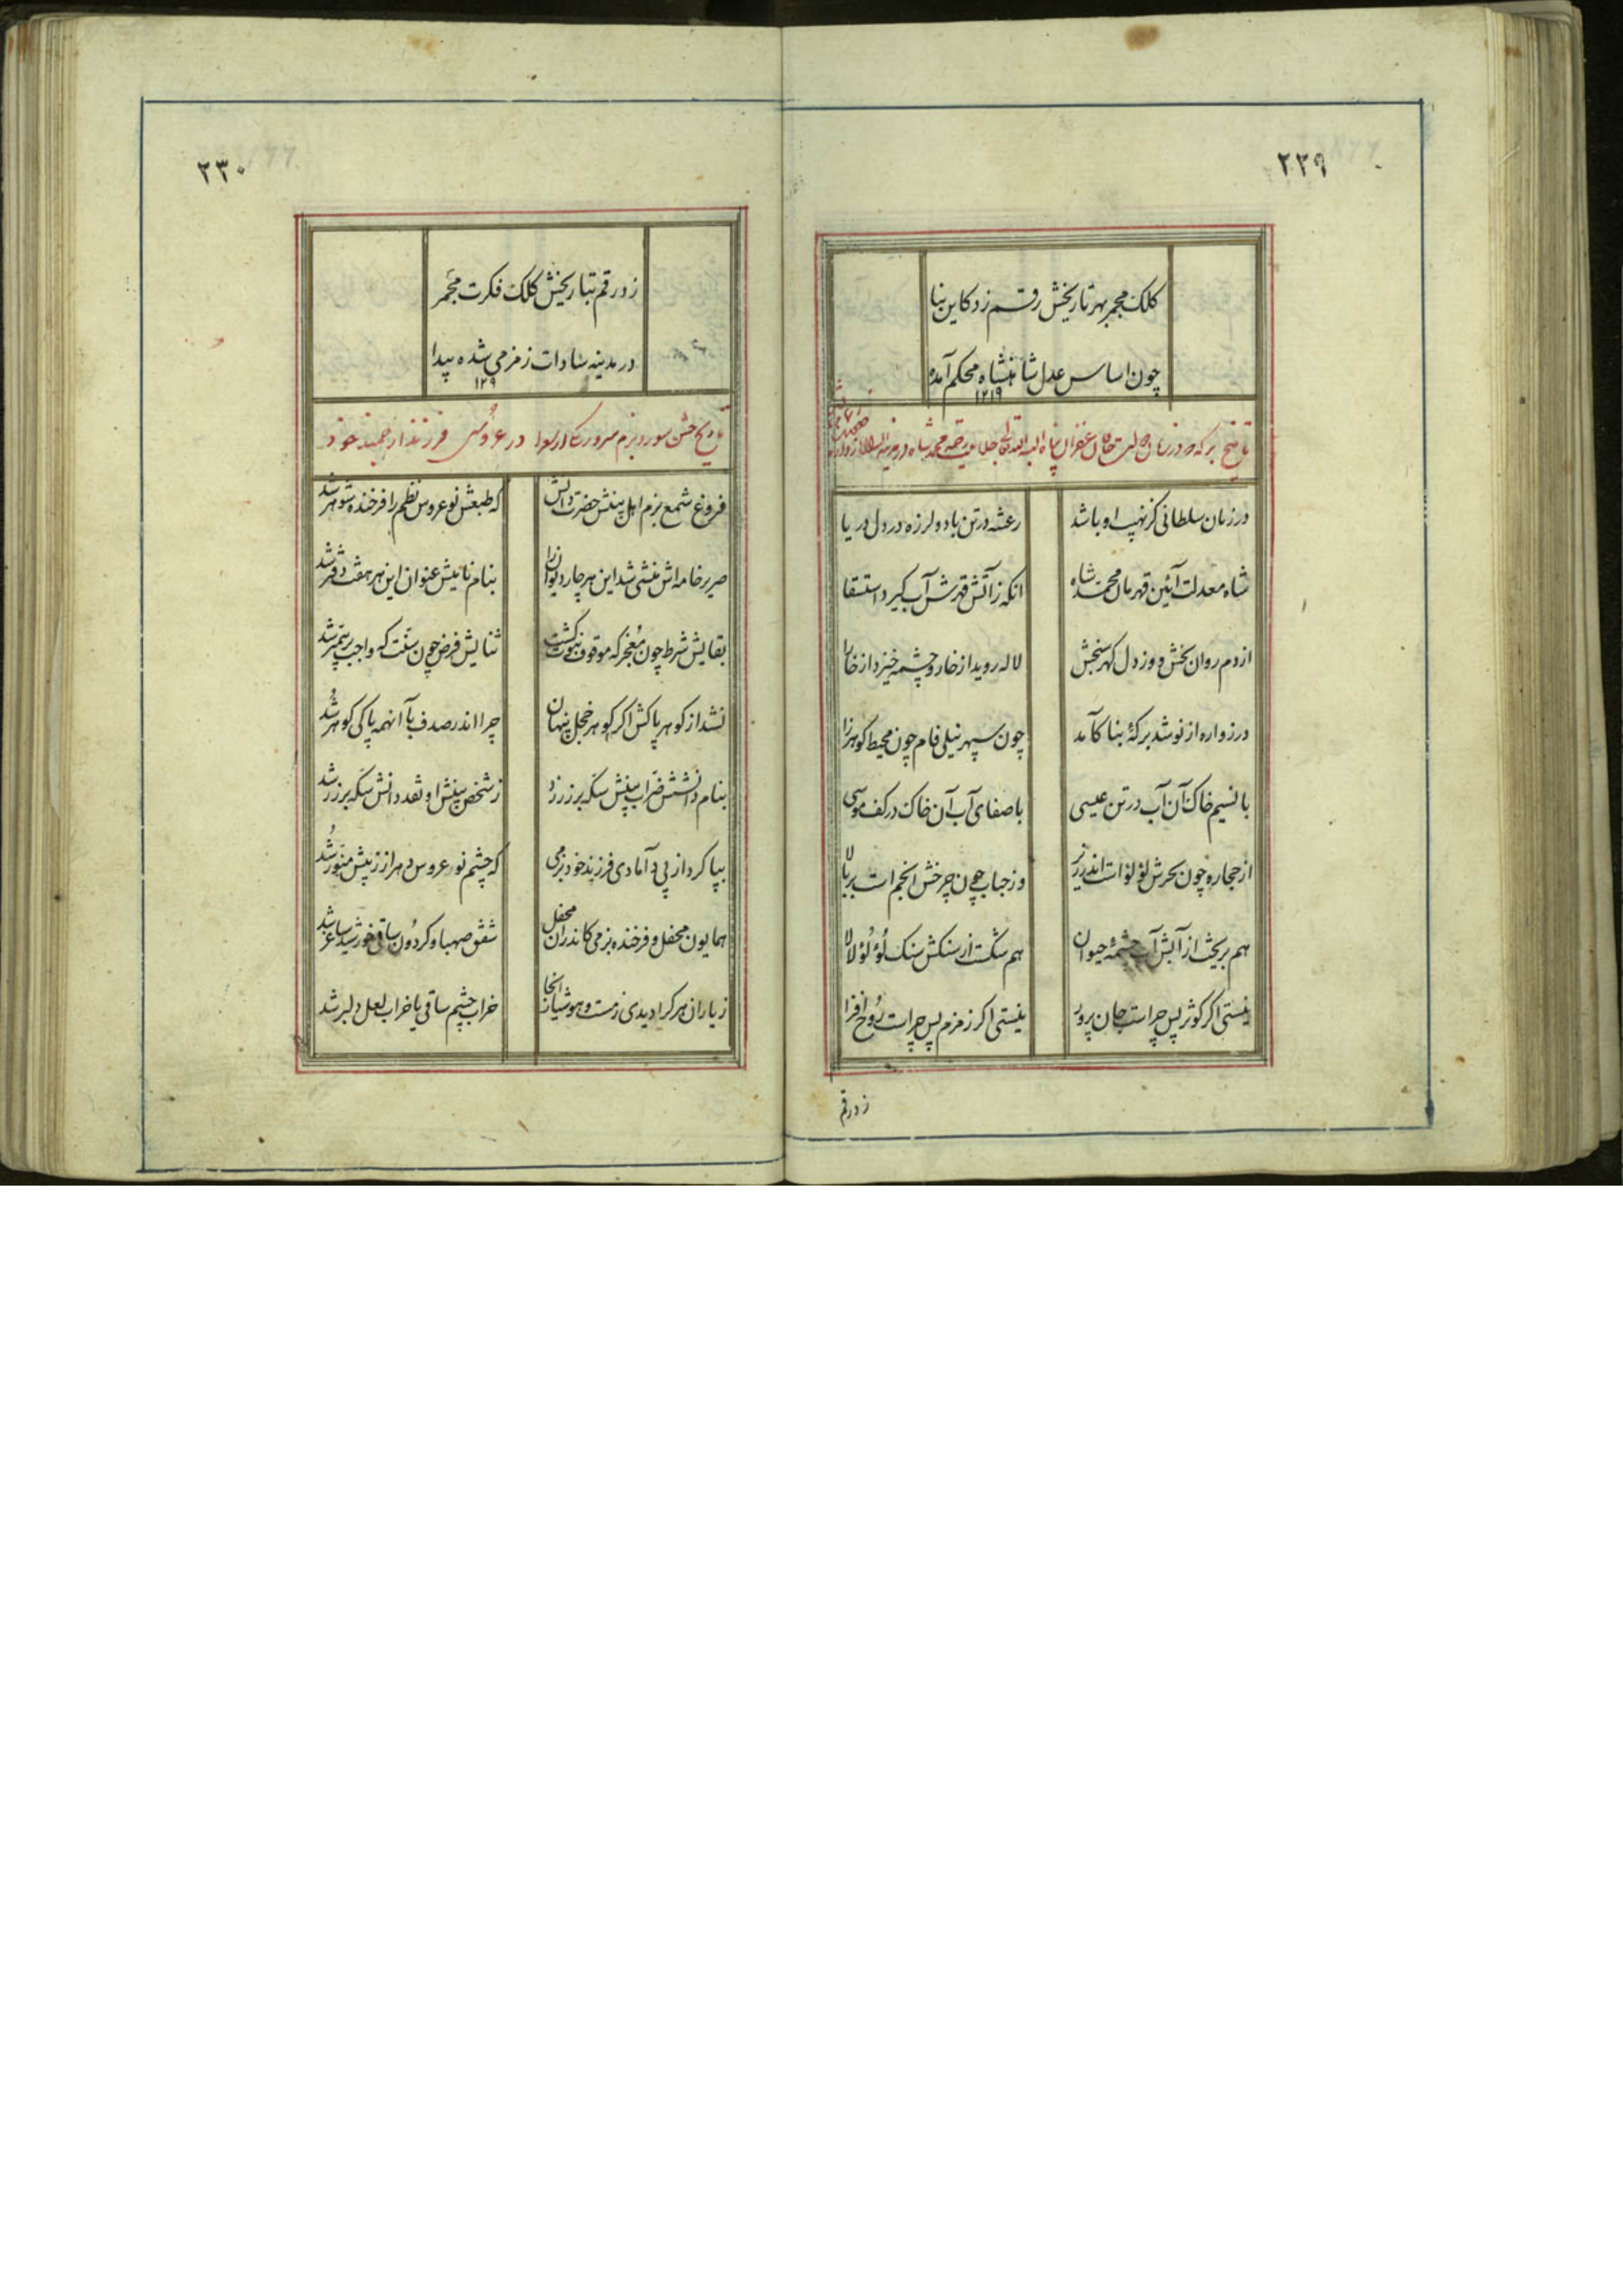 ۲۲۹
کلک مجمر بهر تاریخش رقم زد کاین بنا
چون اساس عدل شاهنشاه محکم آمده
۱۲۱۹
در زمان سلطانی کز نهیب او باشد
رعشه در تن باد و لرزه در دل دریا
شاه معدلت آئین قهرمان محمد شاه
انکه زآتش قهرش آب کیرد استسقا
از دم روان بخش و وز دل کهر سنجش
لاله روید از خار و چشمه خیزد از خارا
در زواره از نو شد برکهٔ بنا کآمد
چون سپهر نیلی فام چون محیط کوهرزا
با نسیم خاک آن آب در تن عیسی
با صفای آب آن خاک در کف موسی
از حجاره چون بحرش لؤلؤات اندر زیر
وز حباب چون چرخش انجم است بر بالا
هم بریخت از آبش آب چشمهٔ حیوان
هم شکست از سنکش سنک لؤلؤ لالا
نیستی اکر کوثر پس چراست جان پرور
نیستی اکر زمزم پس چراست روح افزا
زد رقم
۲۳۰
زد رقم بتاریخش کلک فکرت مجمر
در مدینه سادات زمزمی شده پیدا
۱۲۹
تاریخ جشن سور و بزم سرور در عروسی فرزند ارجمند خود
فروغ شمع بزم اهل بینش حضرت دانش
که طبعش نو عروس نظم را فرخنده شوهر شد
صریر خامه اش منشی شد این هر چار دیوان را
بنام نامیش عنوان این هر هفت دفتر شد
بقایش شرط چون معجز که موقوف نبوت کشت
ثنایش فرض چون سنت که واجب بر پیمبر شد
نشد از کوهر پاکش اکر کوهر خجل پنهان
چرا اندر صدف با آنهمه پاکی کوهر شد
بنام دانشش ضراب بینش سکه بر زر زد
ز شخص بینش او نقد دانش سکه بر زر شد
بپا کرد از پی دامادی فرزند خود بزمی
که چشم نو عروس دهر از زیبش منور شد
همایون محفل و فرخنده بزمی کاندران محفل
شفق صهبا و کردون ساقی خورشید ساغر شد
ز یاران هر کرا دیدی ز مست و هوشیار انجا
خراب چشم ساقی یا خراب لعل دلبر شد